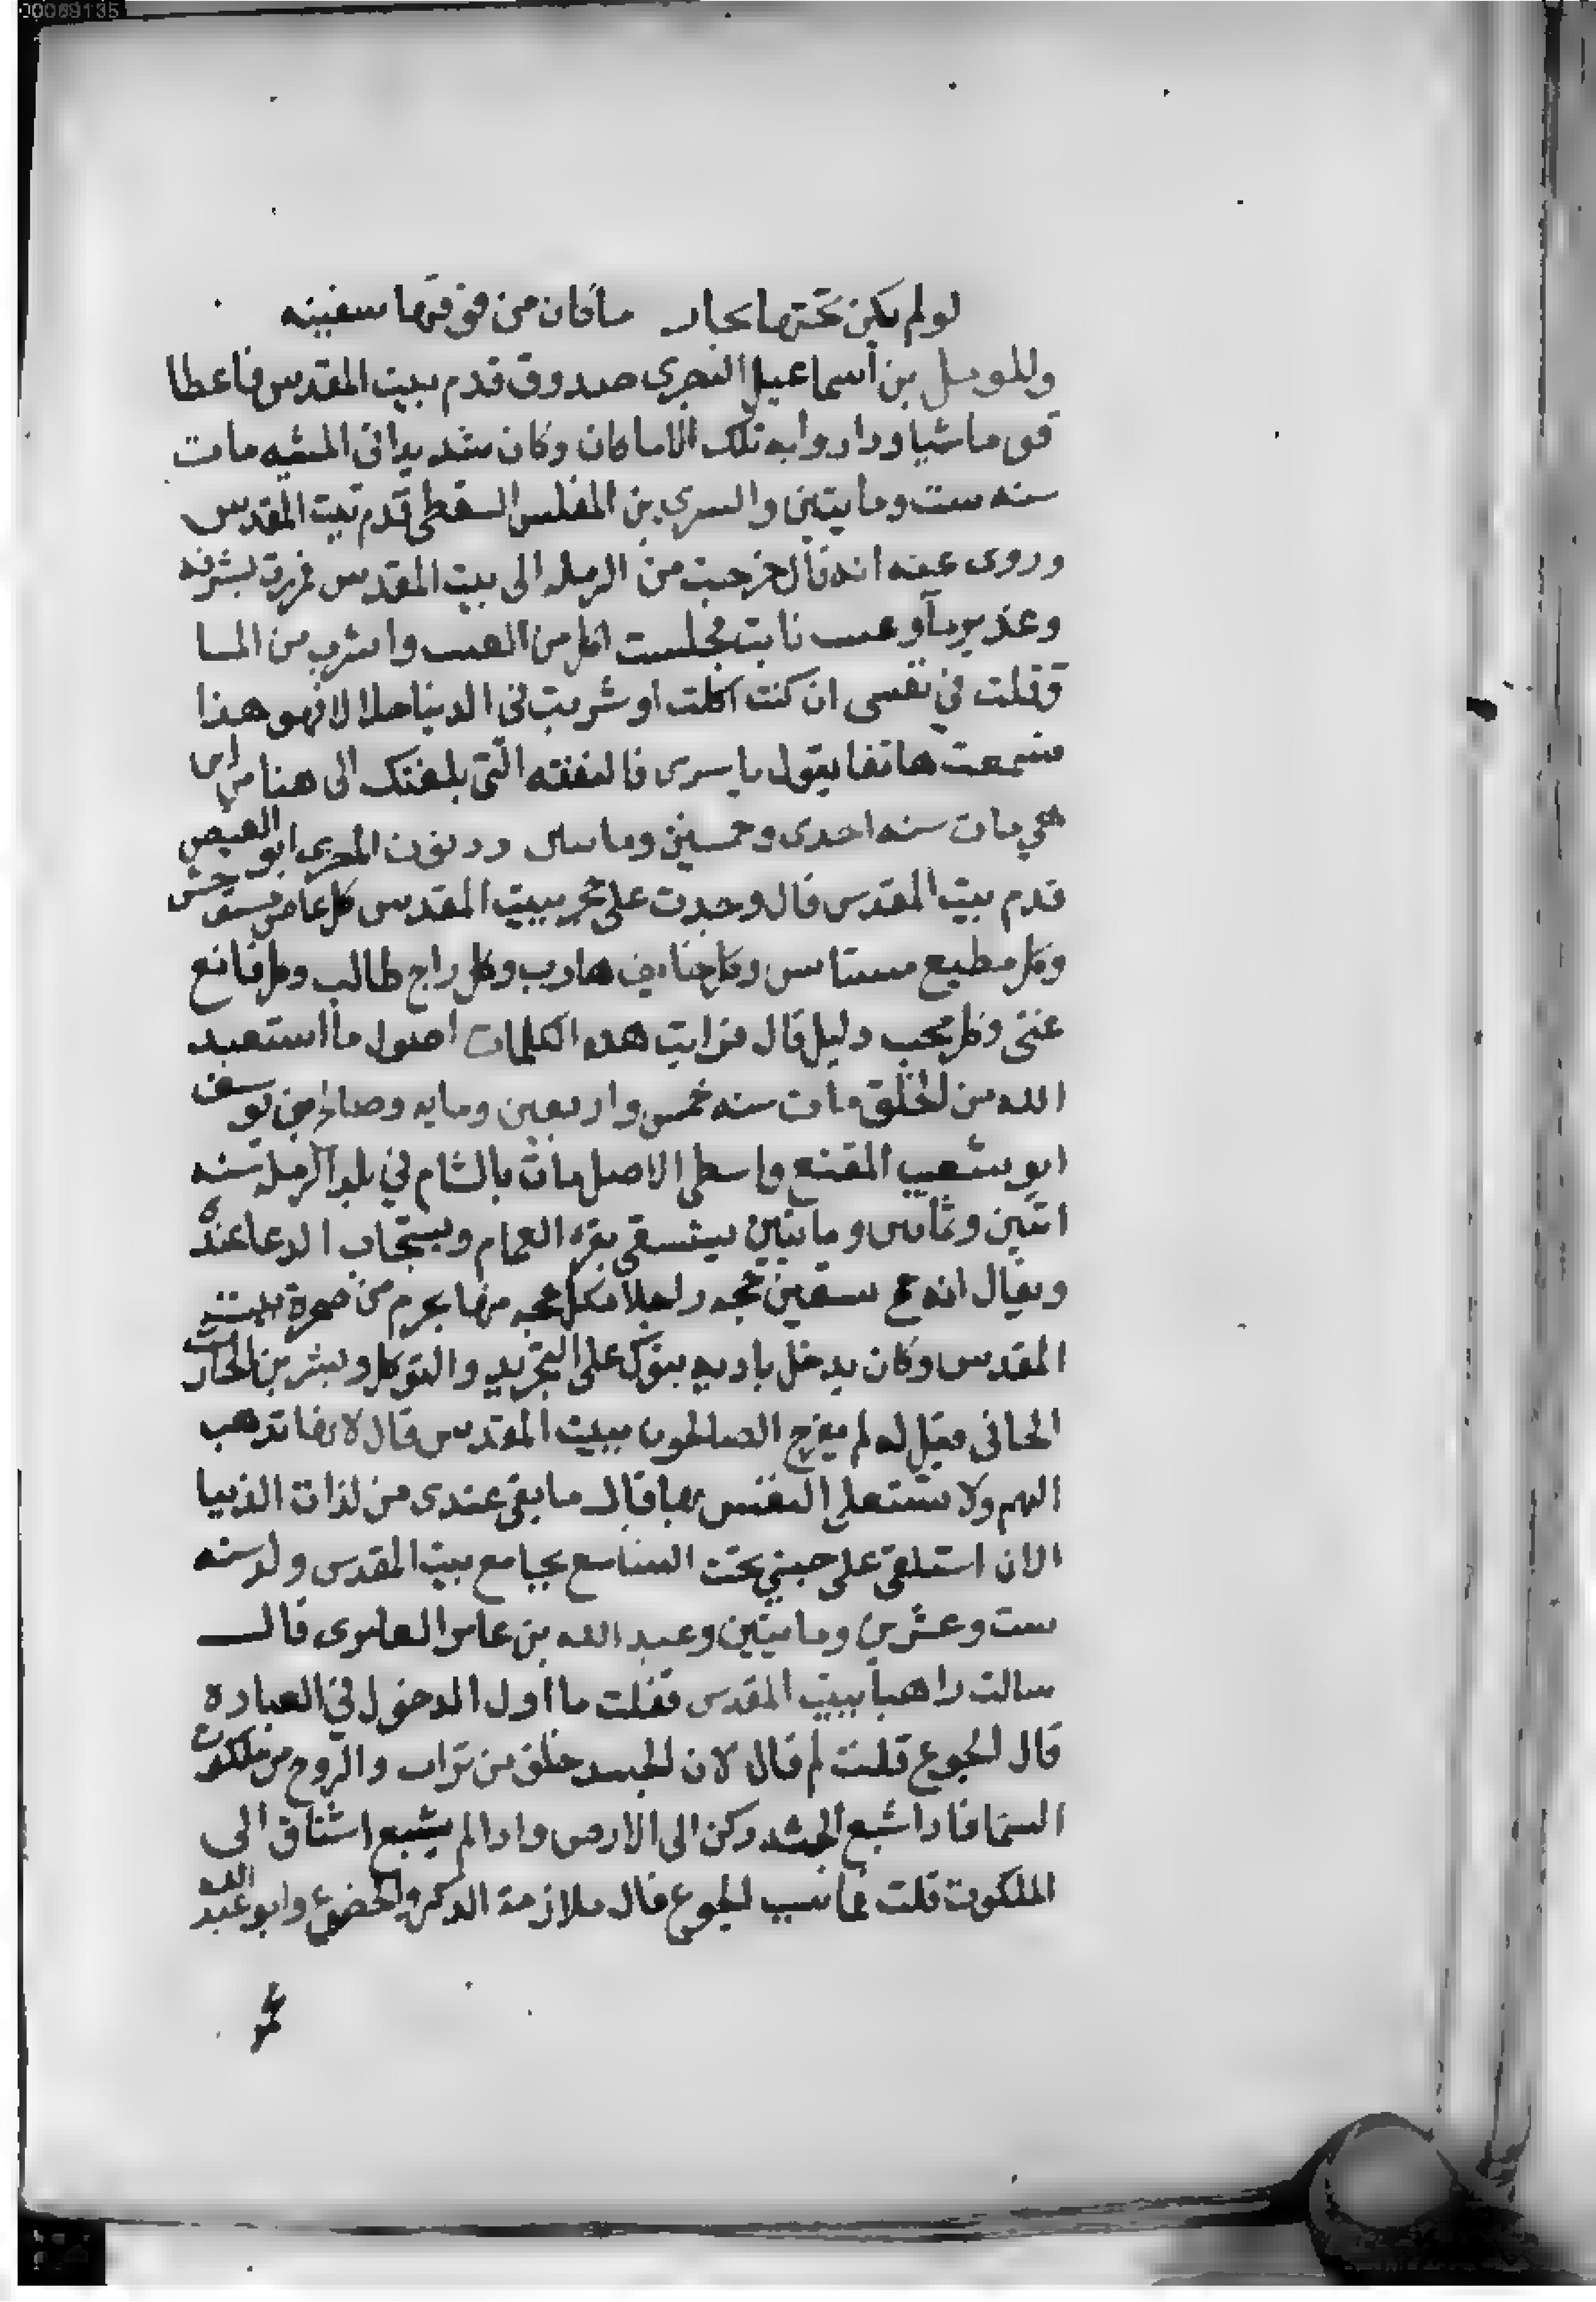 00069135
لو لم يكن تحتها بحار ما كان من فوقها سفينه
والمومل بن اسماعيل البحرى صدوق قدم بيت المقدس فاعطا
قوما شيا وداروا به تلك الاماكان وكان شديدا فى السنه مات
سنه ست ومايتين والسرى بن المفلس السقطى قدم بيت المقدس
وروى عنه انه قال خرجت من الرمله الى بيت المقدس فمررت بشرفه
وغدير مآ وعسب نابت فجلست اكل من العسب واشرب من الما
وقلت في نفسى ان كنت اكلت او شربت فى الدنيا حلالا فهو هذا
فسمعت هاتفا يقول يا سرى فالنفقه التى بلغتك الى هنا من اين
هي مات سنه احدى وخمسين ومايتين وذو نون المصرى ابو الفيض
قدم بيت المقدس قال وجدت على حجر ببيت المقدس كل عاص مستوحش
وكل مطيع مستانس وكل خايف هارب وكل راج طالب وكل قانع
غنى وكل محب ذليل قال فرايت هذه الكلمات اصول ما استعبد
الله من الخلق مات سنه خمس واربعين ومايه وصالح بن يوسف
ابو شعيب المقنع واسطى الاصل مات بالشام في بلد الرمله سنه
اثنين وثمانين ومايتين يستسقى بقبره الغمام ويستجاب الدعا عنده
ويقال انه حج سبعين حجه راجلا فكل حجه منها يحرم من صخرة بيت
المقدس وكان يدخل باديه تبوك على التجريد والتوكل وبشر بن الحارث
الحافى فقيل له لم يفرح الصالحون ببيت المقدس قال لانها تذهب
الهم ولا تستعلى النفس بها قال ما بقى عندى من لذات الدنيا
الا ان استلقى على جنبي تحت السما بجامع بيت المقدس ولد سنه
ست وعشرين ومايتين وعبد الله بن عامر العامرى قال
سالت راهبا ببيت المقدس فقلت ما اول الدخول في العباده
قال الجوع قلت لم قال لان الجسد خلق من تراب والروح من ملكوت
السما فاذا شبع الجسد ركن الى الارض واذا لم يشبع اشتاق الى
الملكوت قلت فما سبب الجوع قال ملازمة الذكر والخضوع وابو عبد الله